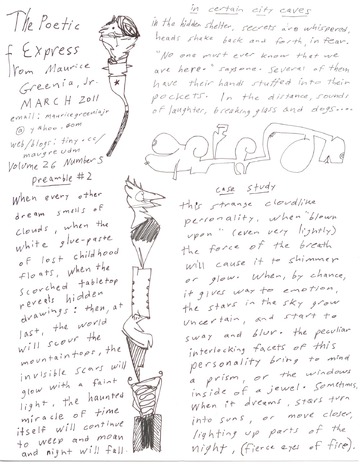 The Poetic
Express
from Maurice
Greenia, Jr.
MARCH 2011
email: mauricegreeniajr
@yahoo.com
web/blogs: tiny.cc/
maugreudm
Volume 26 Number 5
Preamble #2
When every other
dream smells of
clouds, when the
white glue-paste
of lost childhood
floats, when the
scorched tabletop
reveals hidden
drawings: then, at
last, the world
will scour the
mountaintops, the
invisible scars will
glow with a faint
light. the haunted
miracle of time
itself will continue
to weep and moan
and night will fall.
in certain city caves
in the hidden shelter, secrets are whispered,
heads shake back and forth, in fear.
"No one must ever know that we
are here." someone. Several of them
have their hands stuffed into their
pockets. In the distance, sounds
of laughter, breaking glass and dogs....
case study
this strange cloudline
personality. When "blown
upon" (even very lightly)
the force of the breath
will cause it to shimmer
or glow. When, by chance,
it gives way to emotion,
the stars in the sky grow
uncertain, and start to
sway and blur. the peculiar
interlocking facets of this
personality bring to mind
a prism, or the windows
inside of a jewel. Sometimes,
When it dreams, stars turn
into suns, or move closer,
lighting up parts of the
night, (fierce eyes of fire).